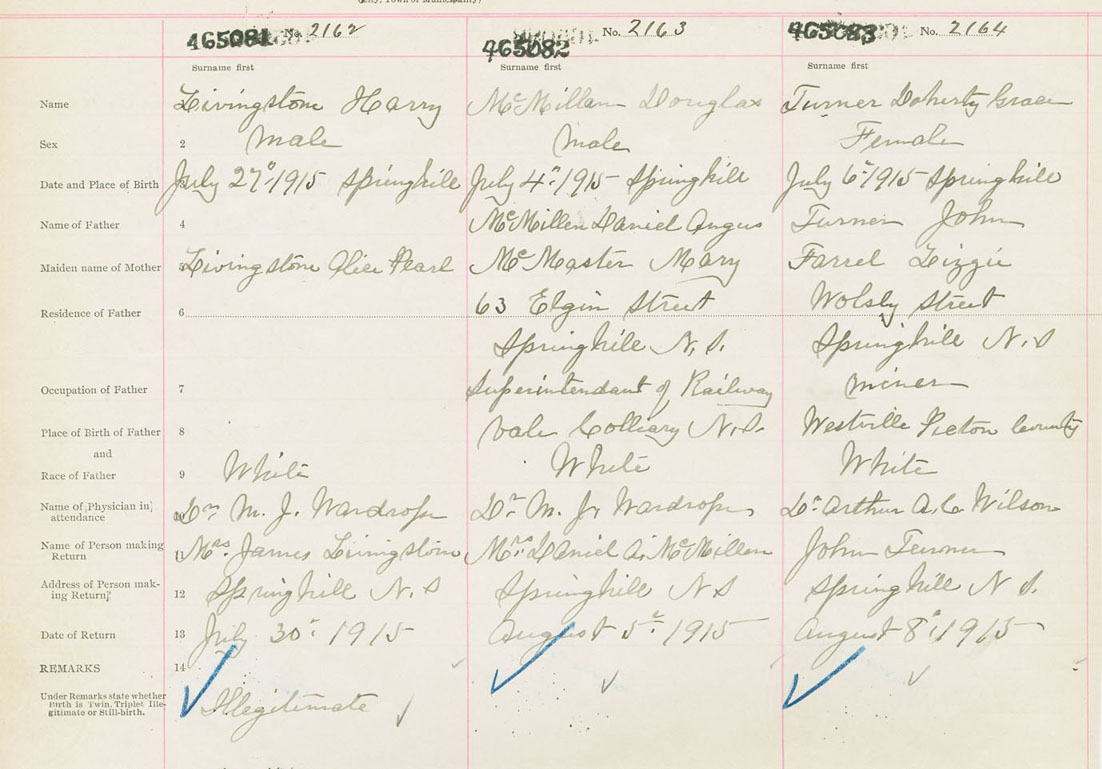 (City, Town or Municipality)
465081 No. 2162
465082 No. 2163
465083 No. 2164
Surname first Surname first Surname first
Name Livingstone Harry McMillan Douglas Turner Doherty Grace
Sex 2 Male Male Female
Date and Place of Birth July 27" 1915 Springhill July 4" 1915 Springhill July 6" 1915 Springhill
Name of Father 4 McMillen Daniel Angus Turner John
Maiden name of Mother 5 Livingstone Alice Pearl McMaster Mary Farrel Lizzie
Residence of Father 6 63 Elgin Street Wolsly Street
Springhill N.S. Springhill N.S
Occupation of Father 7 Superintendant of Railway miner
Place of Birth of Father 8 Vale Colliary N.S. Westville Picton County
and
Race of Father 9 White White White
Name of Physician in attendance 10 Dr M. J. Wardrope Dr M. J. Wardrope Dr Arthur A. C. Wilson
Name of Person making Return 11 Mrs. James Livingstone Mrs Daniel A. McMillen John Turner
Address of Person making Return 12 Springhill N.S Springhill N S Springhill N S.
Date of Return 13 July 30" 1915 August 5" 1915 August 8" 1915
REMARKS 14
Under Remarks state whether Birth is Twin, Triplet Illegitimate or Still-birth.
Illegitimate